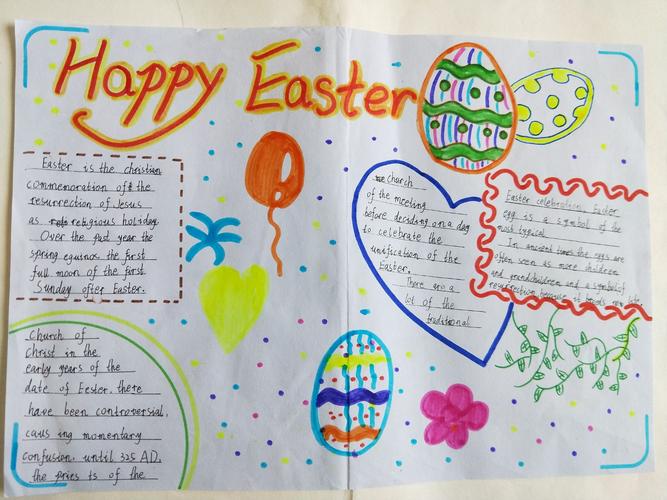 Happy Easter
Easter is the christian
commemoration of the
resurrection of Jesus
as religious holiday
Over the past year the
spring equinox the first
full moon of the first
Sunday after Easter.
Church of
Christ in the
early years of the
date of Eester, there
have been controversial,
caus ing momentary
confusion, until 325 AD,
the pries ts of the
church
of the meeting
before deciding on a day
to celebrate the
unification of the
Easter.
There are a
lot of the
traditional
Easter celebration. Easter
egg is a symbol of the
most typical.
In ancient times the eggs are
often seen as more children
and grandchildren and a symbol of
resurrection because it